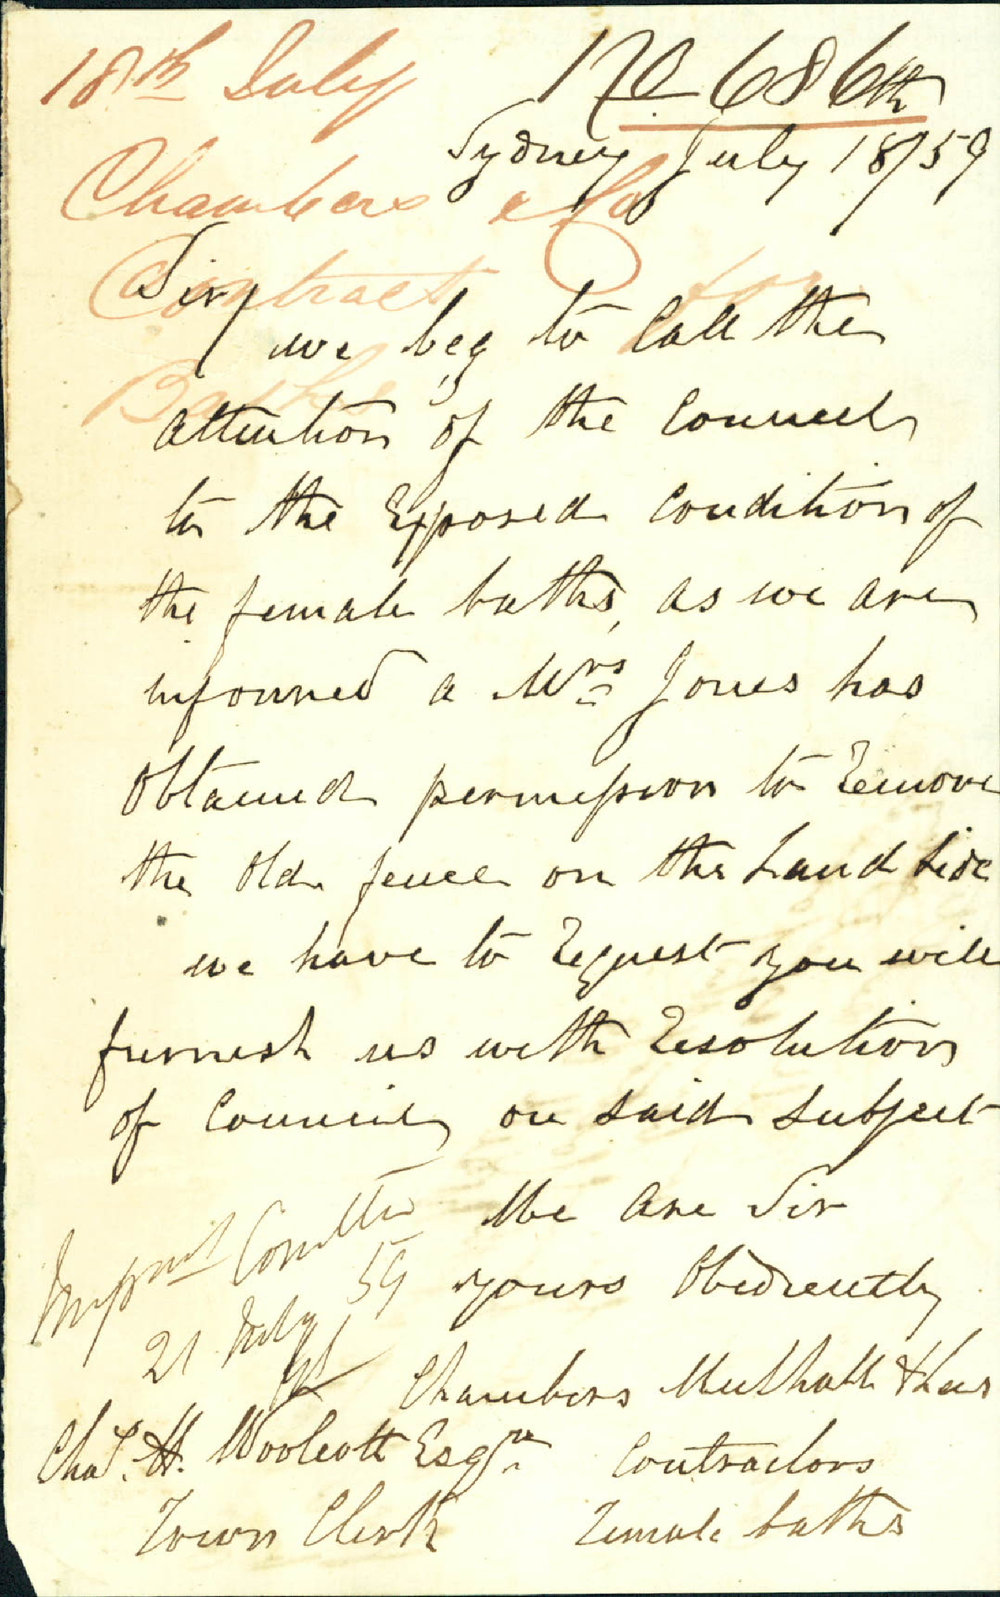 18th July No 686th
Sydney July 18/59
Chambers & Co
Contract for
Baths
Sir/
we beg to Call the
attention of the Council
to the Exposed Condition of
the female baths, as we are
informed a Mrs Jones has
Obtained permission to Remove
the Old fence on the Land Side
we have to Request you will
furnish us with Resolution
of Council on said Subject
We are Sir
yours Obediently
Chambers Mulhall &
Contractors
Female baths
Impvmt Comttee
21 July 59
Chas. H. Woolcott Esqre
Town Clerk